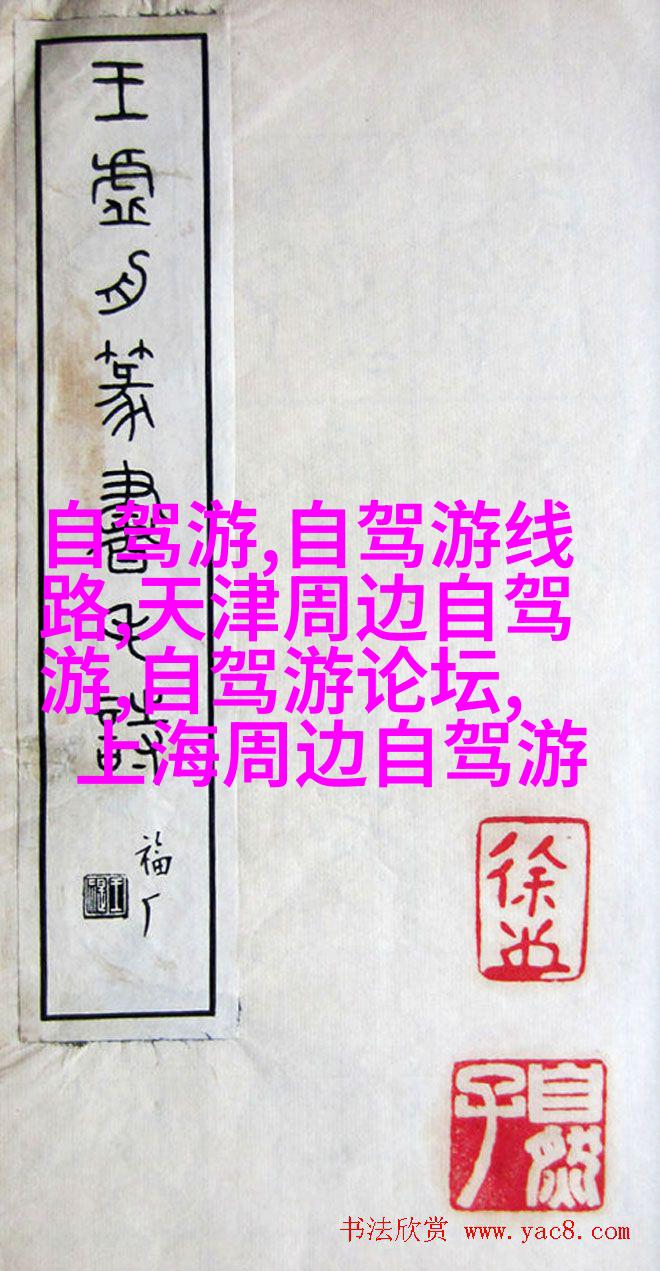 王虛舟篆書
詩
福厂
自驾游,自驾游线
路,天津周边自驾
游,自驾游论坛,
上海周边自驾游
徐
自然子
书法欣赏 www.yac8.com